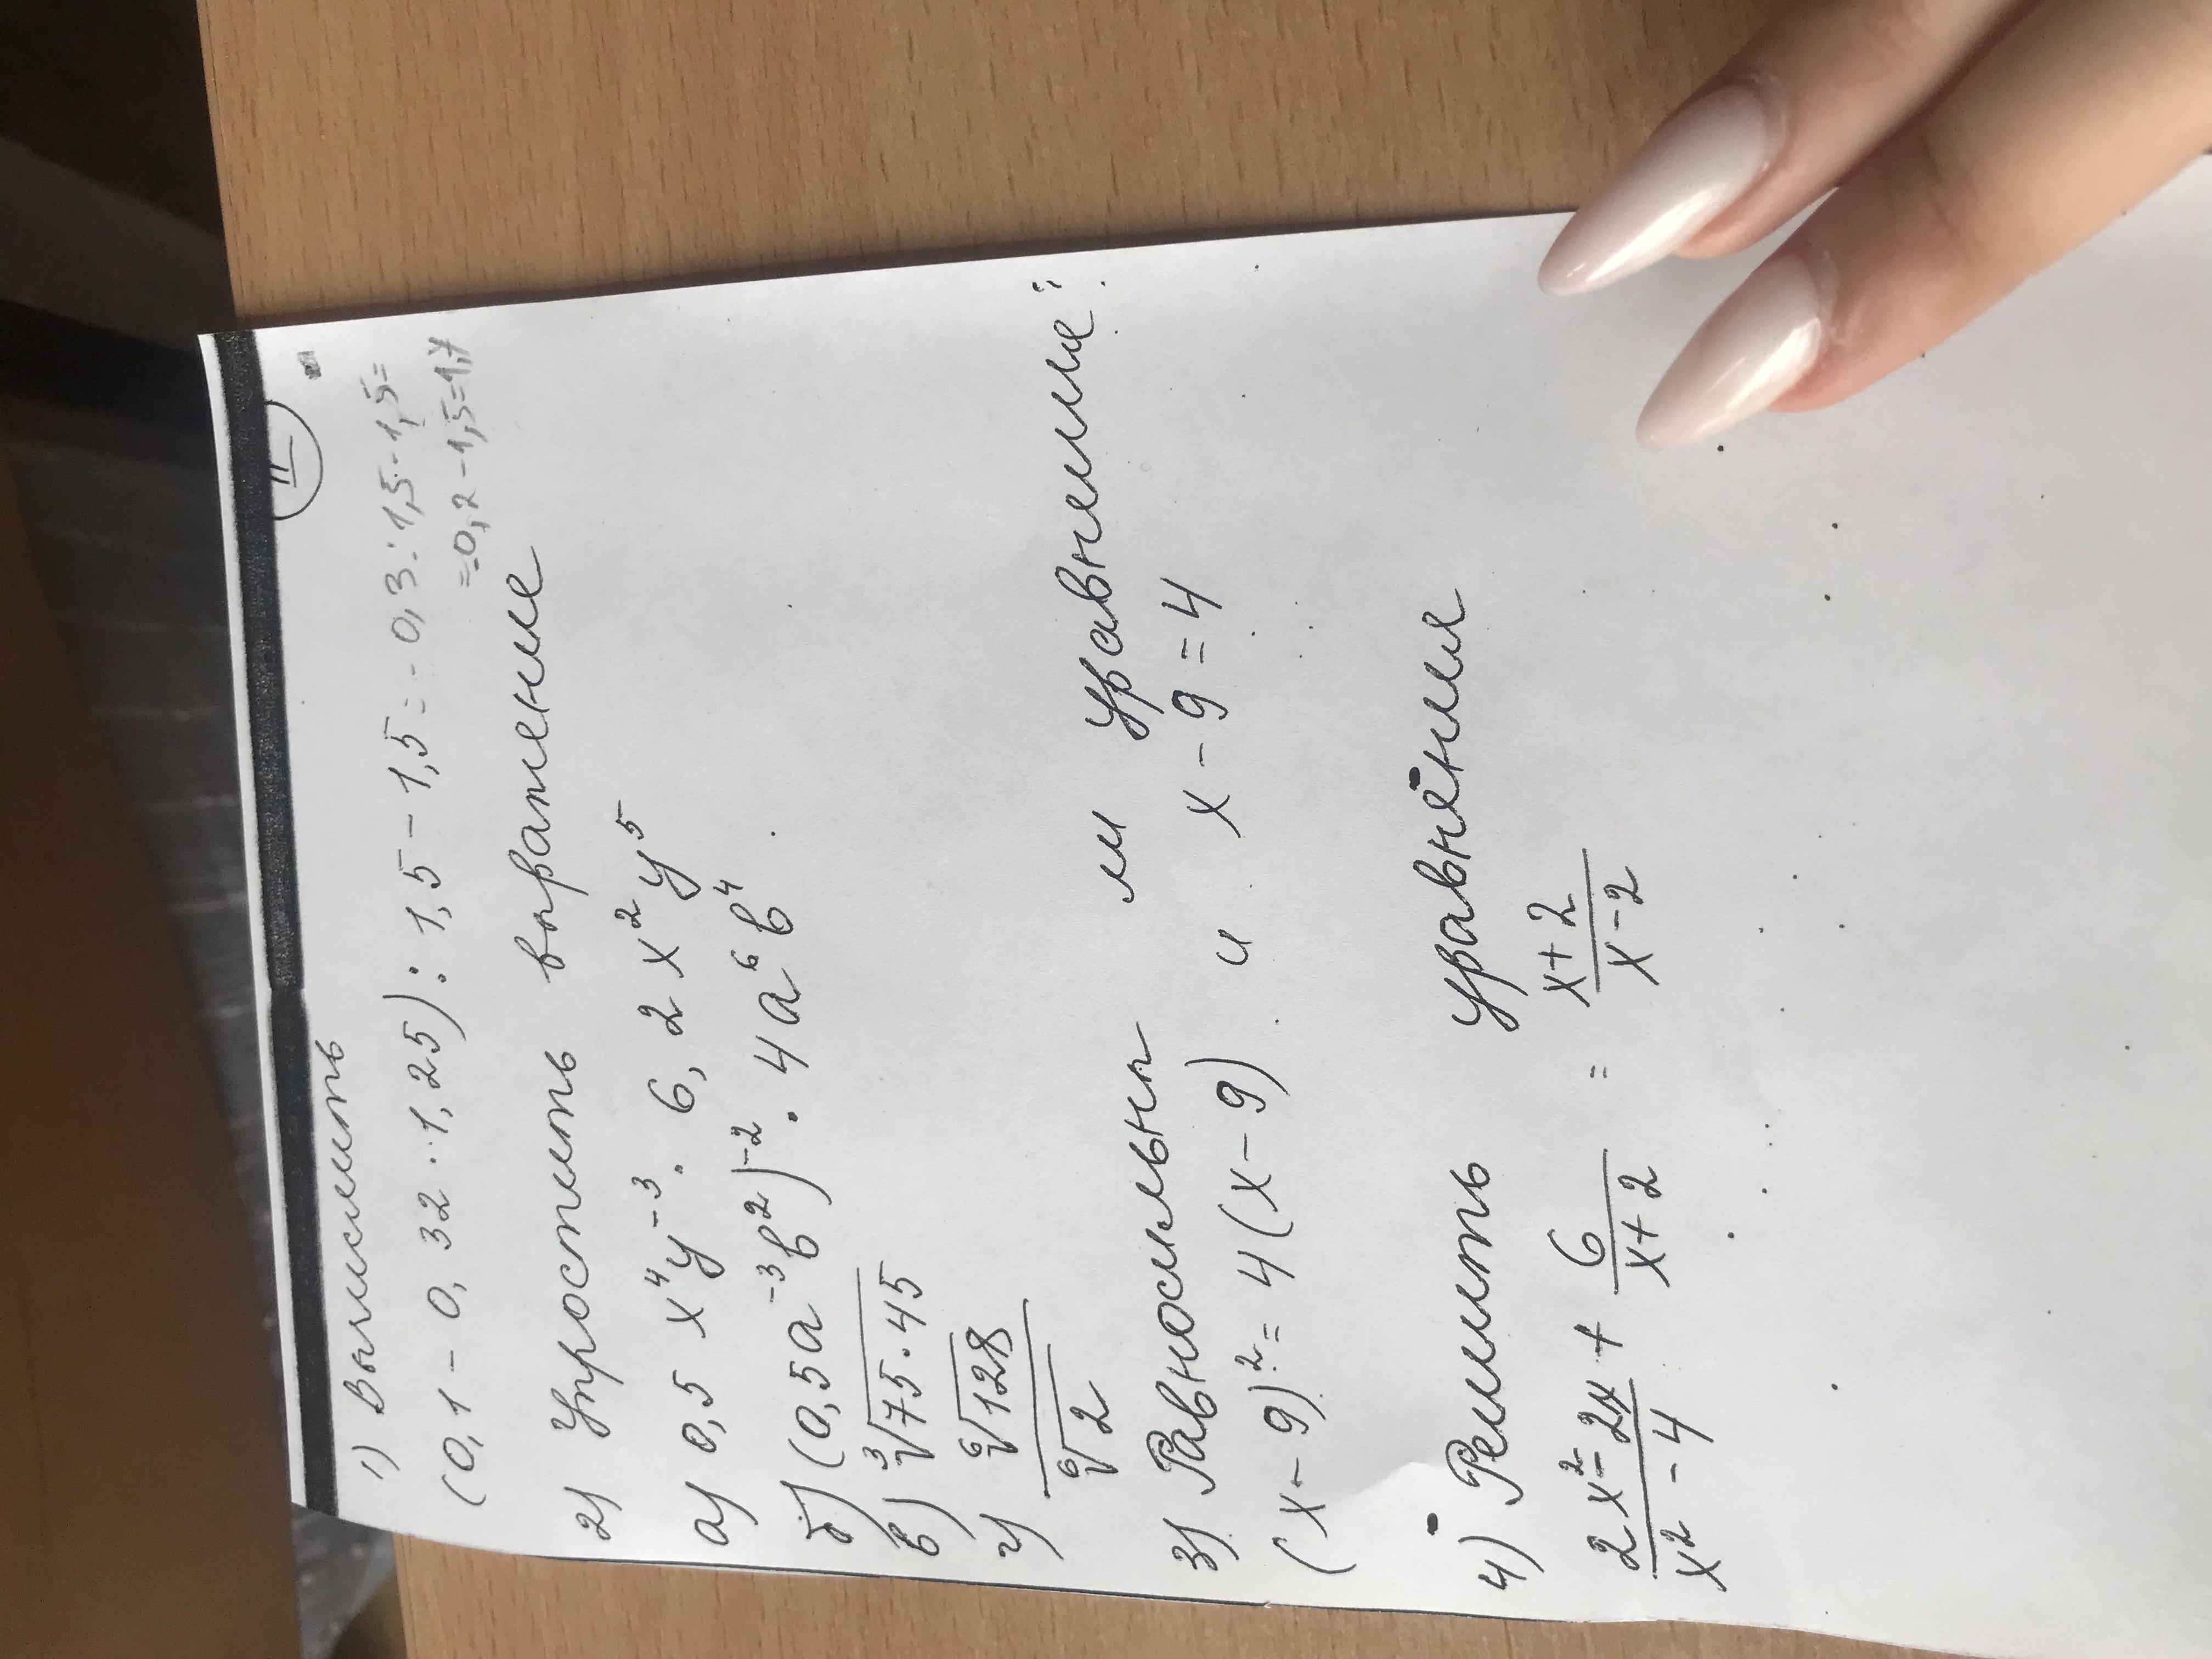 II
1) Вычислить
(0,1 - 0,32 · 1,25) : 1,5 - 1,5 = - 0,3 : 1,5 - 1,5 =
= -0,2 - 1,5 = 1,7
2) Упростить выражение
а) 0,5 x⁴y⁻³ · 6,2 x²y⁵
б) (0,5a⁻³b²)⁻² · 4a⁶b⁴
в) ∛(75·45)
г) ⁶√128 / ⁶√2
3) Равносильны ли уравнения:
(x - 9)² = 4(x - 9) и x - 9 = 4
4) Решить уравнения
(2x² - 2x)/(x² - 4) + 6/(x+2) = (x+2)/(x-2)